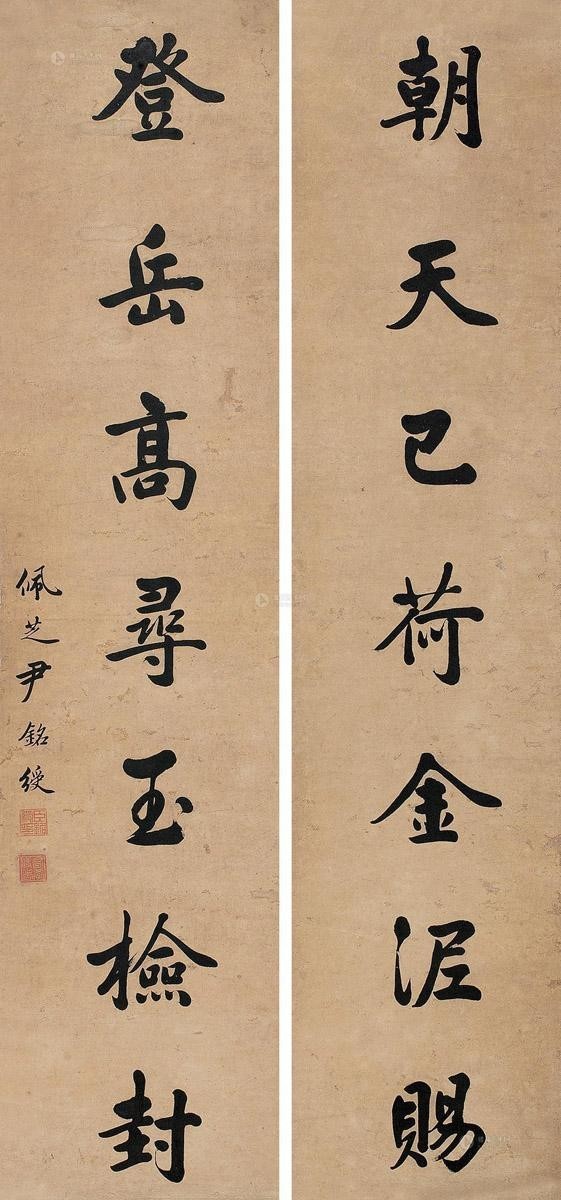 朝天已荷金泥賜
登岳高尋玉檢封
佩芝尹銘綬